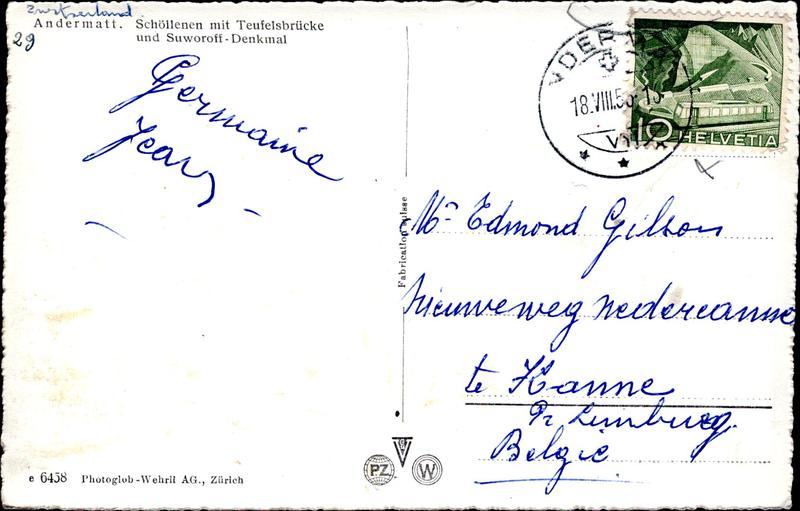 Zwitserland
Andermatt. Schöllenen mit Teufelsbrücke
und Suworoff-Denkmal
29
Germaine
Jean
18.VIII.5
10
HELVETIA
Fabrication suisse
Mr Edmond Gilson
Nieuweweg nedercanne
te Kanne
Pr Limburg.
België
e 6458 Photoglob-Wehrli AG., Zürich
PZ
W